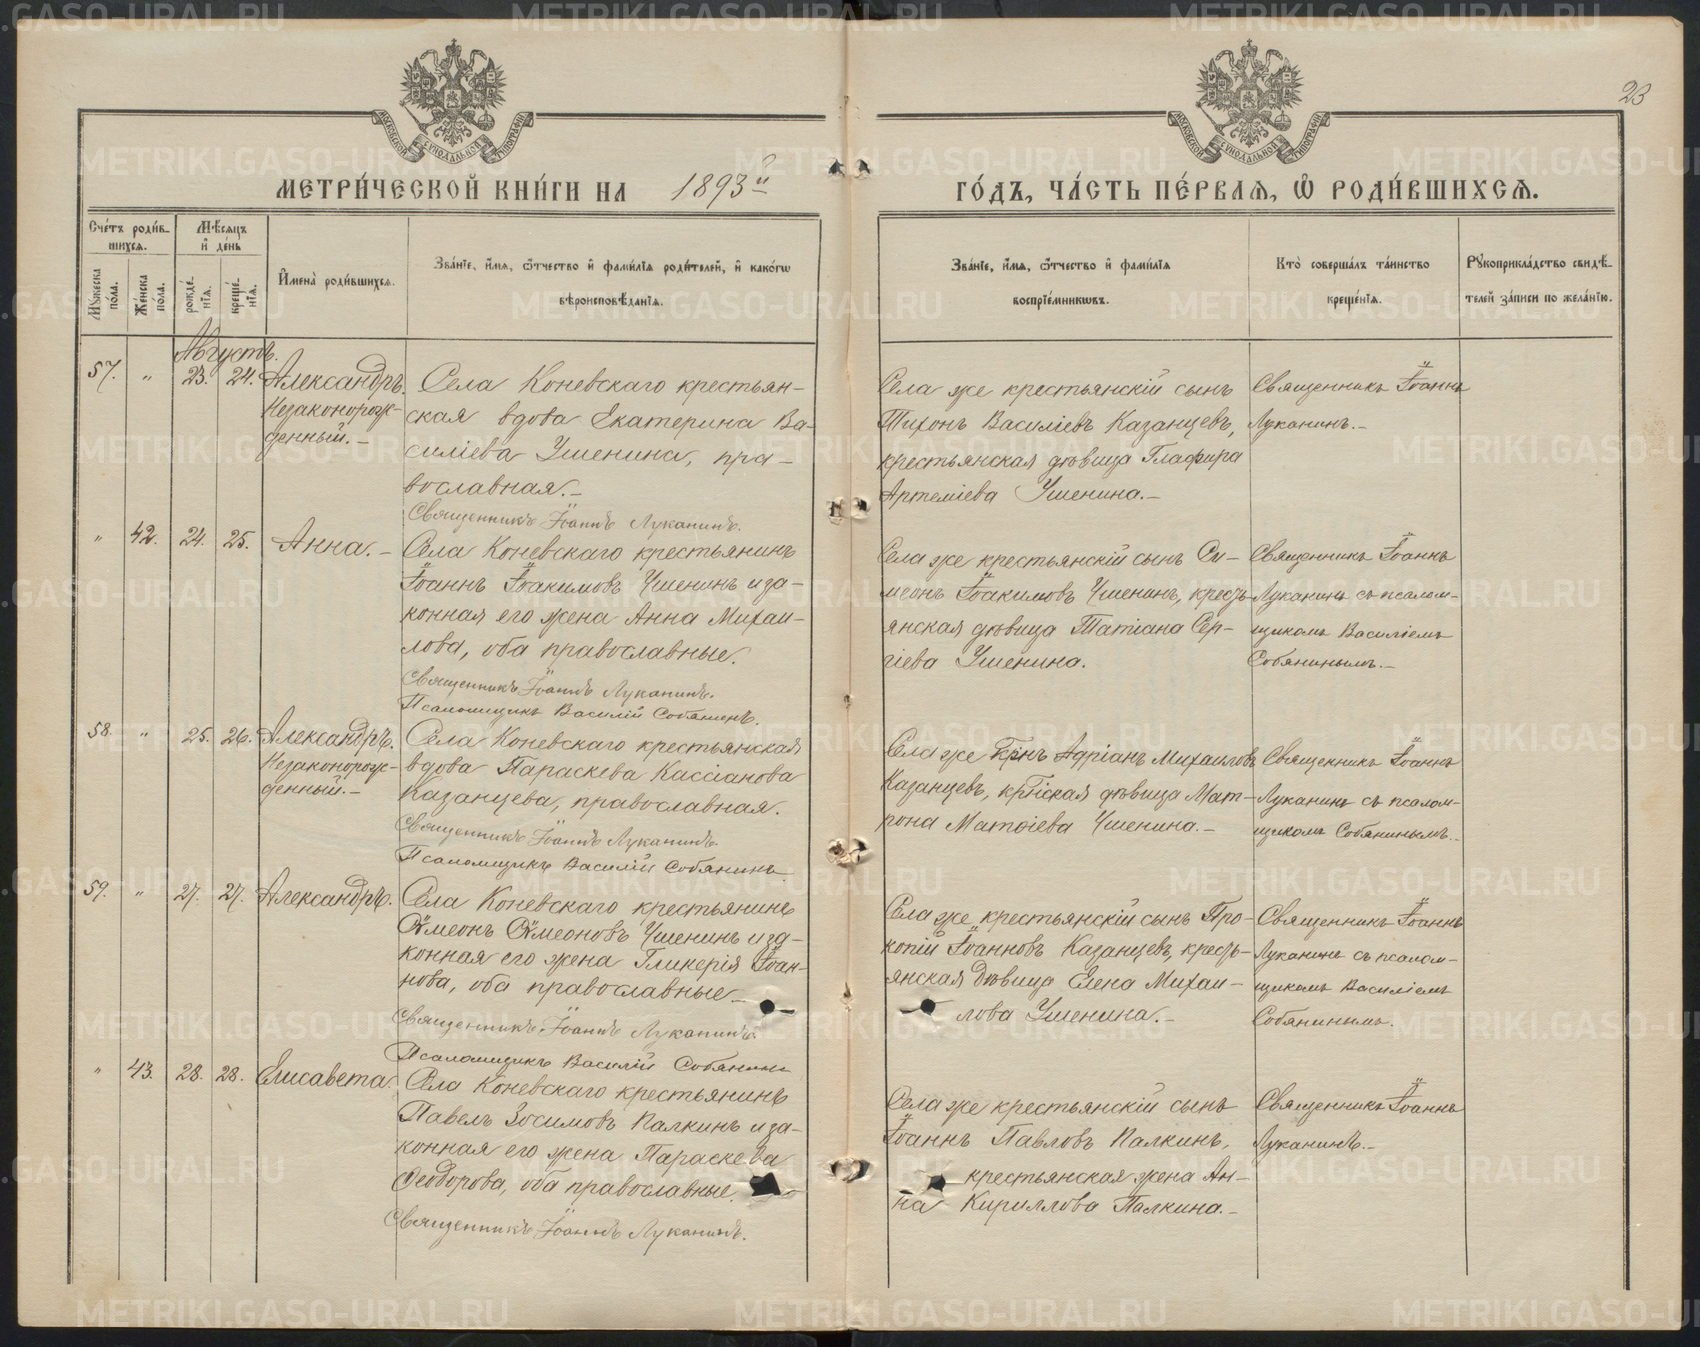 23
МЕТРИ́ЧЕСКОЙ КНИ́ГИ НА 1893й
ГО́ДЪ, ЧА́СТЬ ПЕ́РВАѦ, Ѡ РОДИ́ВШИХСѦ.
МОСКОВСКОЙ СѴНОДАЛЬНОЙ ТИПОГРАФІИ
МОСКОВСКОЙ СѴНОДАЛЬНОЙ ТИПОГРАФІИ
Сче́тъ роди́в-
шихсѧ.
Мѣ́сѧцъ
и҆ де́нь
Мꙋ́жеска
по́ла.
Же́нска
по́ла.
рожде́-
нїѧ.
креще́-
нїѧ.
И҆мена̀ роди́вшихсѧ.
Зва́нїе, и҆́мѧ, ѻ҆́тчество и҆ фами́лїѧ роди́телей, и҆ како́гѡ
вѣроисповѣ́данїѧ.
Зва́нїе, и҆́мѧ, ѻ҆́тчество и҆ фами́лїѧ
воспрїе́мникѡвъ.
Кто̀ соверша́лъ та́инство
креще́нїѧ.
Рꙋкоприкла́дство свидѣ́-
телей за́писи по жела́нїю.
Августъ.
57. " 23. 24. Александръ.
Незаконорож-
денный.-
Села Коневскаго крестьян-
ская вдова Екатерина Ва-
силіева Ушенина, пра-
вославная.-
Священникъ Іоаннъ Луканинъ.
Села же крестьянскій сынъ
Тихонъ Василіевъ Казанцевъ,
крестьянская дѣвица Глафира
Артеміева Ушенина.-
Священникъ Іоаннъ
Луканинъ.-
" 42. 24. 25. Анна.-
Села Коневскаго крестьянинъ
Іоаннъ Іоакимовъ Ушенинъ и за-
конная его жена Анна Михаи-
лова, оба православные.
Священникъ Іоаннъ Луканинъ.
Псаломщикъ Василій Собянинъ.
Села же крестьянскій сынъ Си-
меонъ Іоакимовъ Ушенинъ, кресть-
янская дѣвица Татіана Сер-
гіева Ушенина.
Священникъ Іоаннъ
Луканинъ съ псалом-
щикомъ Василіемъ
Собянинымъ.-
58. " 25. 26. Александръ.
Незаконорож-
денный.-
Села Коневскаго крестьянская
вдова Параскева Кассіанова
Казанцева, православная.
Священникъ Іоаннъ Луканинъ.
Псаломщикъ Василій Собянинъ.
Села же крнъ Адріанъ Михаиловъ
Казанцевъ, кртіская дѣвица Мат-
рона Матѳіева Ушенина.-
Священникъ Іоаннъ
Луканинъ съ псалом-
щикомъ Собянинымъ.
59. " 27. 27. Александръ.
Села Коневскаго крестьянинъ
Сѵмеонъ Сѵмеоновъ Ушенинъ и за-
конная его жена Гликерія Іоан-
нова, оба православные.-
Священникъ Іоаннъ Луканинъ.
Псаломщикъ Василій Собянинъ
Села же крестьянскій сынъ Про-
копій Іоанновъ Казанцевъ, кресть-
янская дѣвица Елена Михаи-
лова Ушенина.-
Священникъ Іоаннъ
Луканинъ съ псалом-
щикомъ Василіемъ
Собянинымъ.
" 43. 28. 28. Елисавета.
Села Коневскаго крестьянинъ
Павелъ Зосимовъ Палкинъ и за-
конная его жена Параскева
Ѳеодорова, оба православные.
Священникъ Іоаннъ Луканинъ.
Села же крестьянскій сынъ
Іоаннъ Павловъ Палкинъ,
крестьянская жена Ан-
на Кириллова Палкина.-
Священникъ Іоаннъ
Луканинъ.-
METRIKI.GASO-URAL.RU